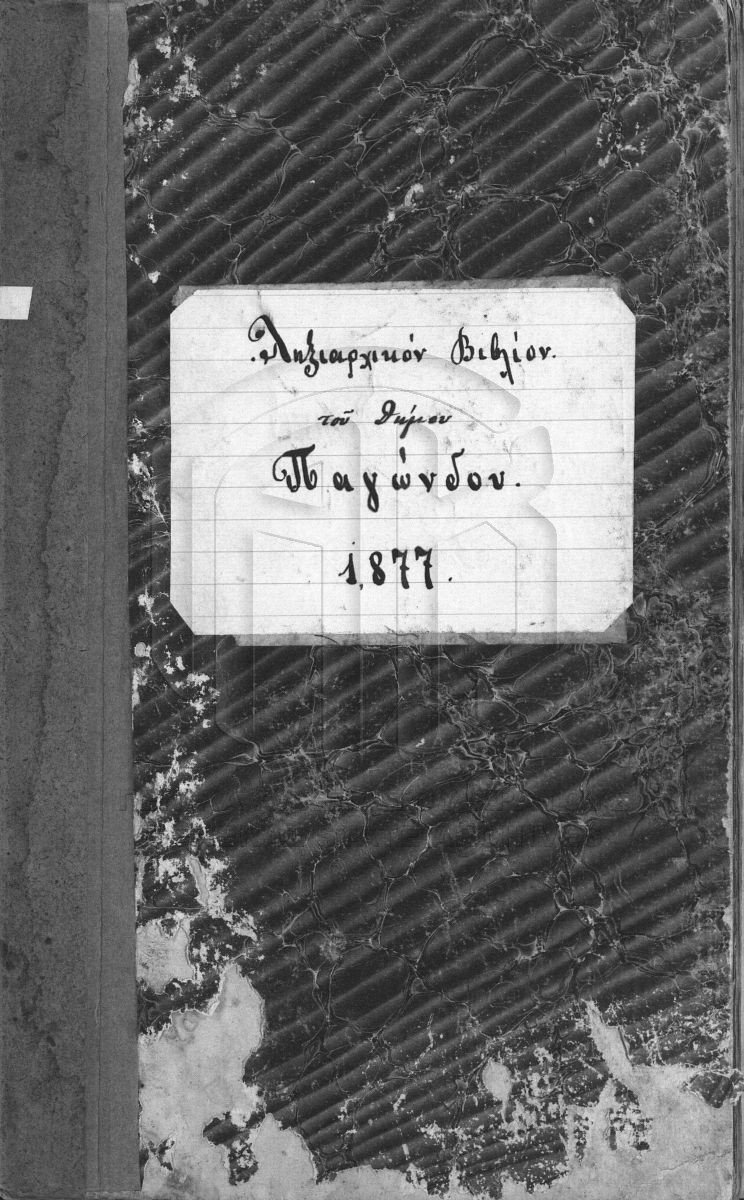 Ληξιαρχικόν Βιβλίον.
τοῦ Δήμου
Παγώνδου.
1877.